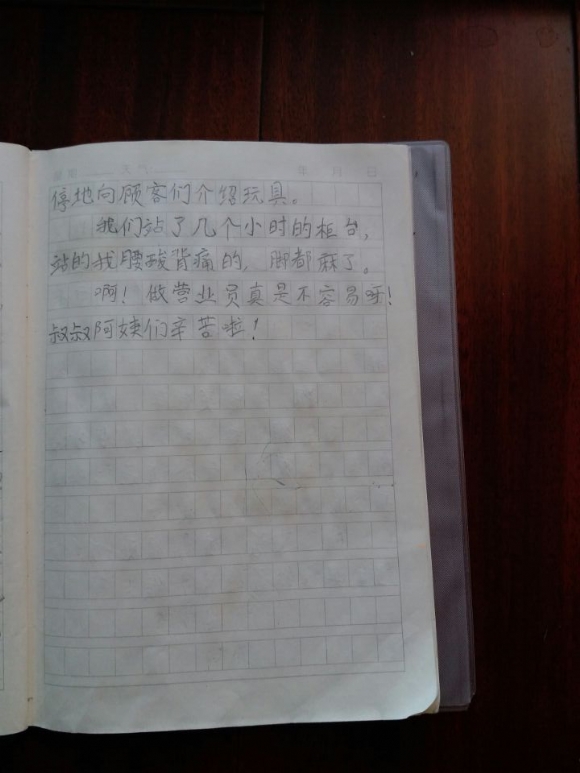 年 月 日
停地向顾客们介绍玩具。
我们站了几个小时的柜台，
站的我腰酸背痛的，脚都麻了。
啊！做营业员真是不容易呀！
叔叔阿姨们辛苦啦！